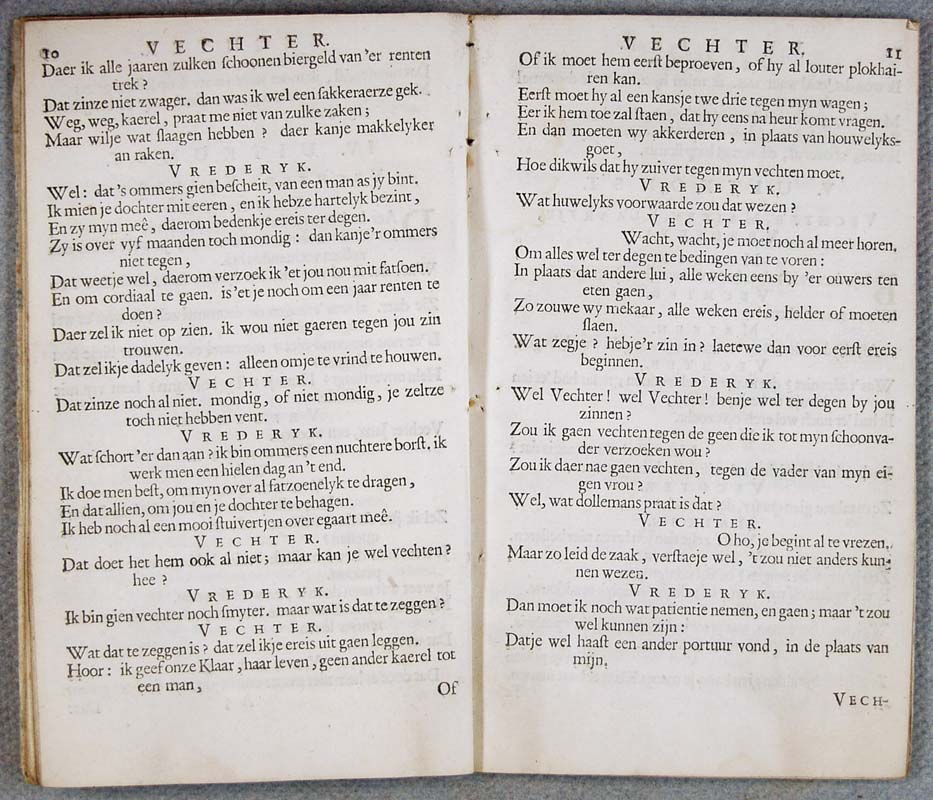 10
VECHTER.
Daer ik alle jaaren zulken ſchoonen biergeld van 'er renten
trek?
Dat zinze niet zwager. dan was ik wel een ſakkeraerze gek.
Weg, weg, kaerel, praat me niet van zulke zaken;
Maar wilje wat ſlaagen hebben? daer kanje makkelyker
an raken.
VREDERYK.
Wel: dat's ommers gien beſcheit, van een man as jy bint.
Ik mien je dochter mit eeren, en ik hebze hartelyk bezint,
En zy myn meê, daerom bedenkje ereis ter degen.
Zy is over vyf maanden toch mondig: dan kanje'r ommers
niet tegen,
Dat weetje wel, daerom verzoek ik 'et jou nou mit fatſoen.
En om cordiaal te gaen. is 'et je noch om een jaar renten te
doen?
Daer zel ik niet op zien. ik wou niet gaeren tegen jou zin
trouwen.
Dat zel ikje dadelyk geven: alleen omje te vrind te houwen.
VECHTER.
Dat zinze noch al niet. mondig, of niet mondig, je zeltze
toch niet hebben vent.
VREDERYK.
Wat ſchort 'er dan aan? ik bin ommers een nuchtere borſt. ik
werk men een hielen dag an 't end.
Ik doe men beſt, om myn over al fatzoenelyk te dragen,
En dat allien, om jou en je dochter te behagen.
Ik heb noch al een mooi ſtuivertjen over egaart meê.
VECHTER.
Dat doet het hem ook al niet; maar kan je wel vechten?
hee?
VREDERYK.
Ik bin gien vechter noch ſmyter. maar wat is dat te zeggen?
VECHTER.
Wat dat te zeggen is? dat zel ikje ereis uit gaen leggen.
Hoor: ik geef onze Klaar, haar leven, geen ander kaerel tot
een man,
Of
VECHTER.
11
Of ik moet hem eerſt beproeven, of hy al louter plokhai-
ren kan.
Eerſt moet hy al een kansje twe drie tegen myn wagen;
Eer ik hem toe zal ſtaen, dat hy eens na heur komt vragen.
En dan moeten wy akkerderen, in plaats van houwelyks-
goet,
Hoe dikwils dat hy zuiver tegen myn vechten moet.
VREDERYK.
Wat huwelyks voorwaarde zou dat wezen?
VECHTER.
Wacht, wacht, je moet noch al meer horen.
Om alles wel ter degen te bedingen van te voren:
In plaats dat andere lui, alle weken eens by 'er ouwers ten
eten gaen,
Zo zouwe wy mekaar, alle weken ereis, helder of moeten
ſlaen.
Wat zegje? hebje'r zin in? laetewe dan voor eerſt ereis
beginnen.
VREDERYK.
Wel Vechter! wel Vechter! benje wel ter degen by jou
zinnen?
Zou ik gaen vechten tegen de geen die ik tot myn ſchoonva-
der verzoeken wou?
Zou ik daer nae gaen vechten, tegen de vader van myn ei-
gen vrou?
Wel, wat dollemans praat is dat?
VECHTER.
O ho, je begint al te vrezen.
Maar zo leid de zaak, verſtaeje wel, 't zou niet anders kun-
nen wezen.
VREDERYK.
Dan moet ik noch wat patientie nemen, en gaen; maar 't zou
wel kunnen zijn:
Datje wel haaſt een ander portuur vond, in de plaats van
mijn.
VECH-